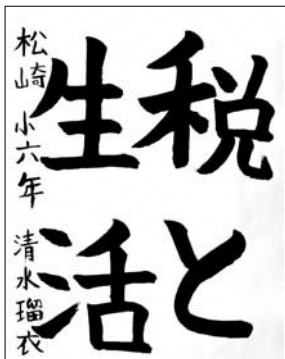 税と
生活
松崎 小六年 清水瑠衣